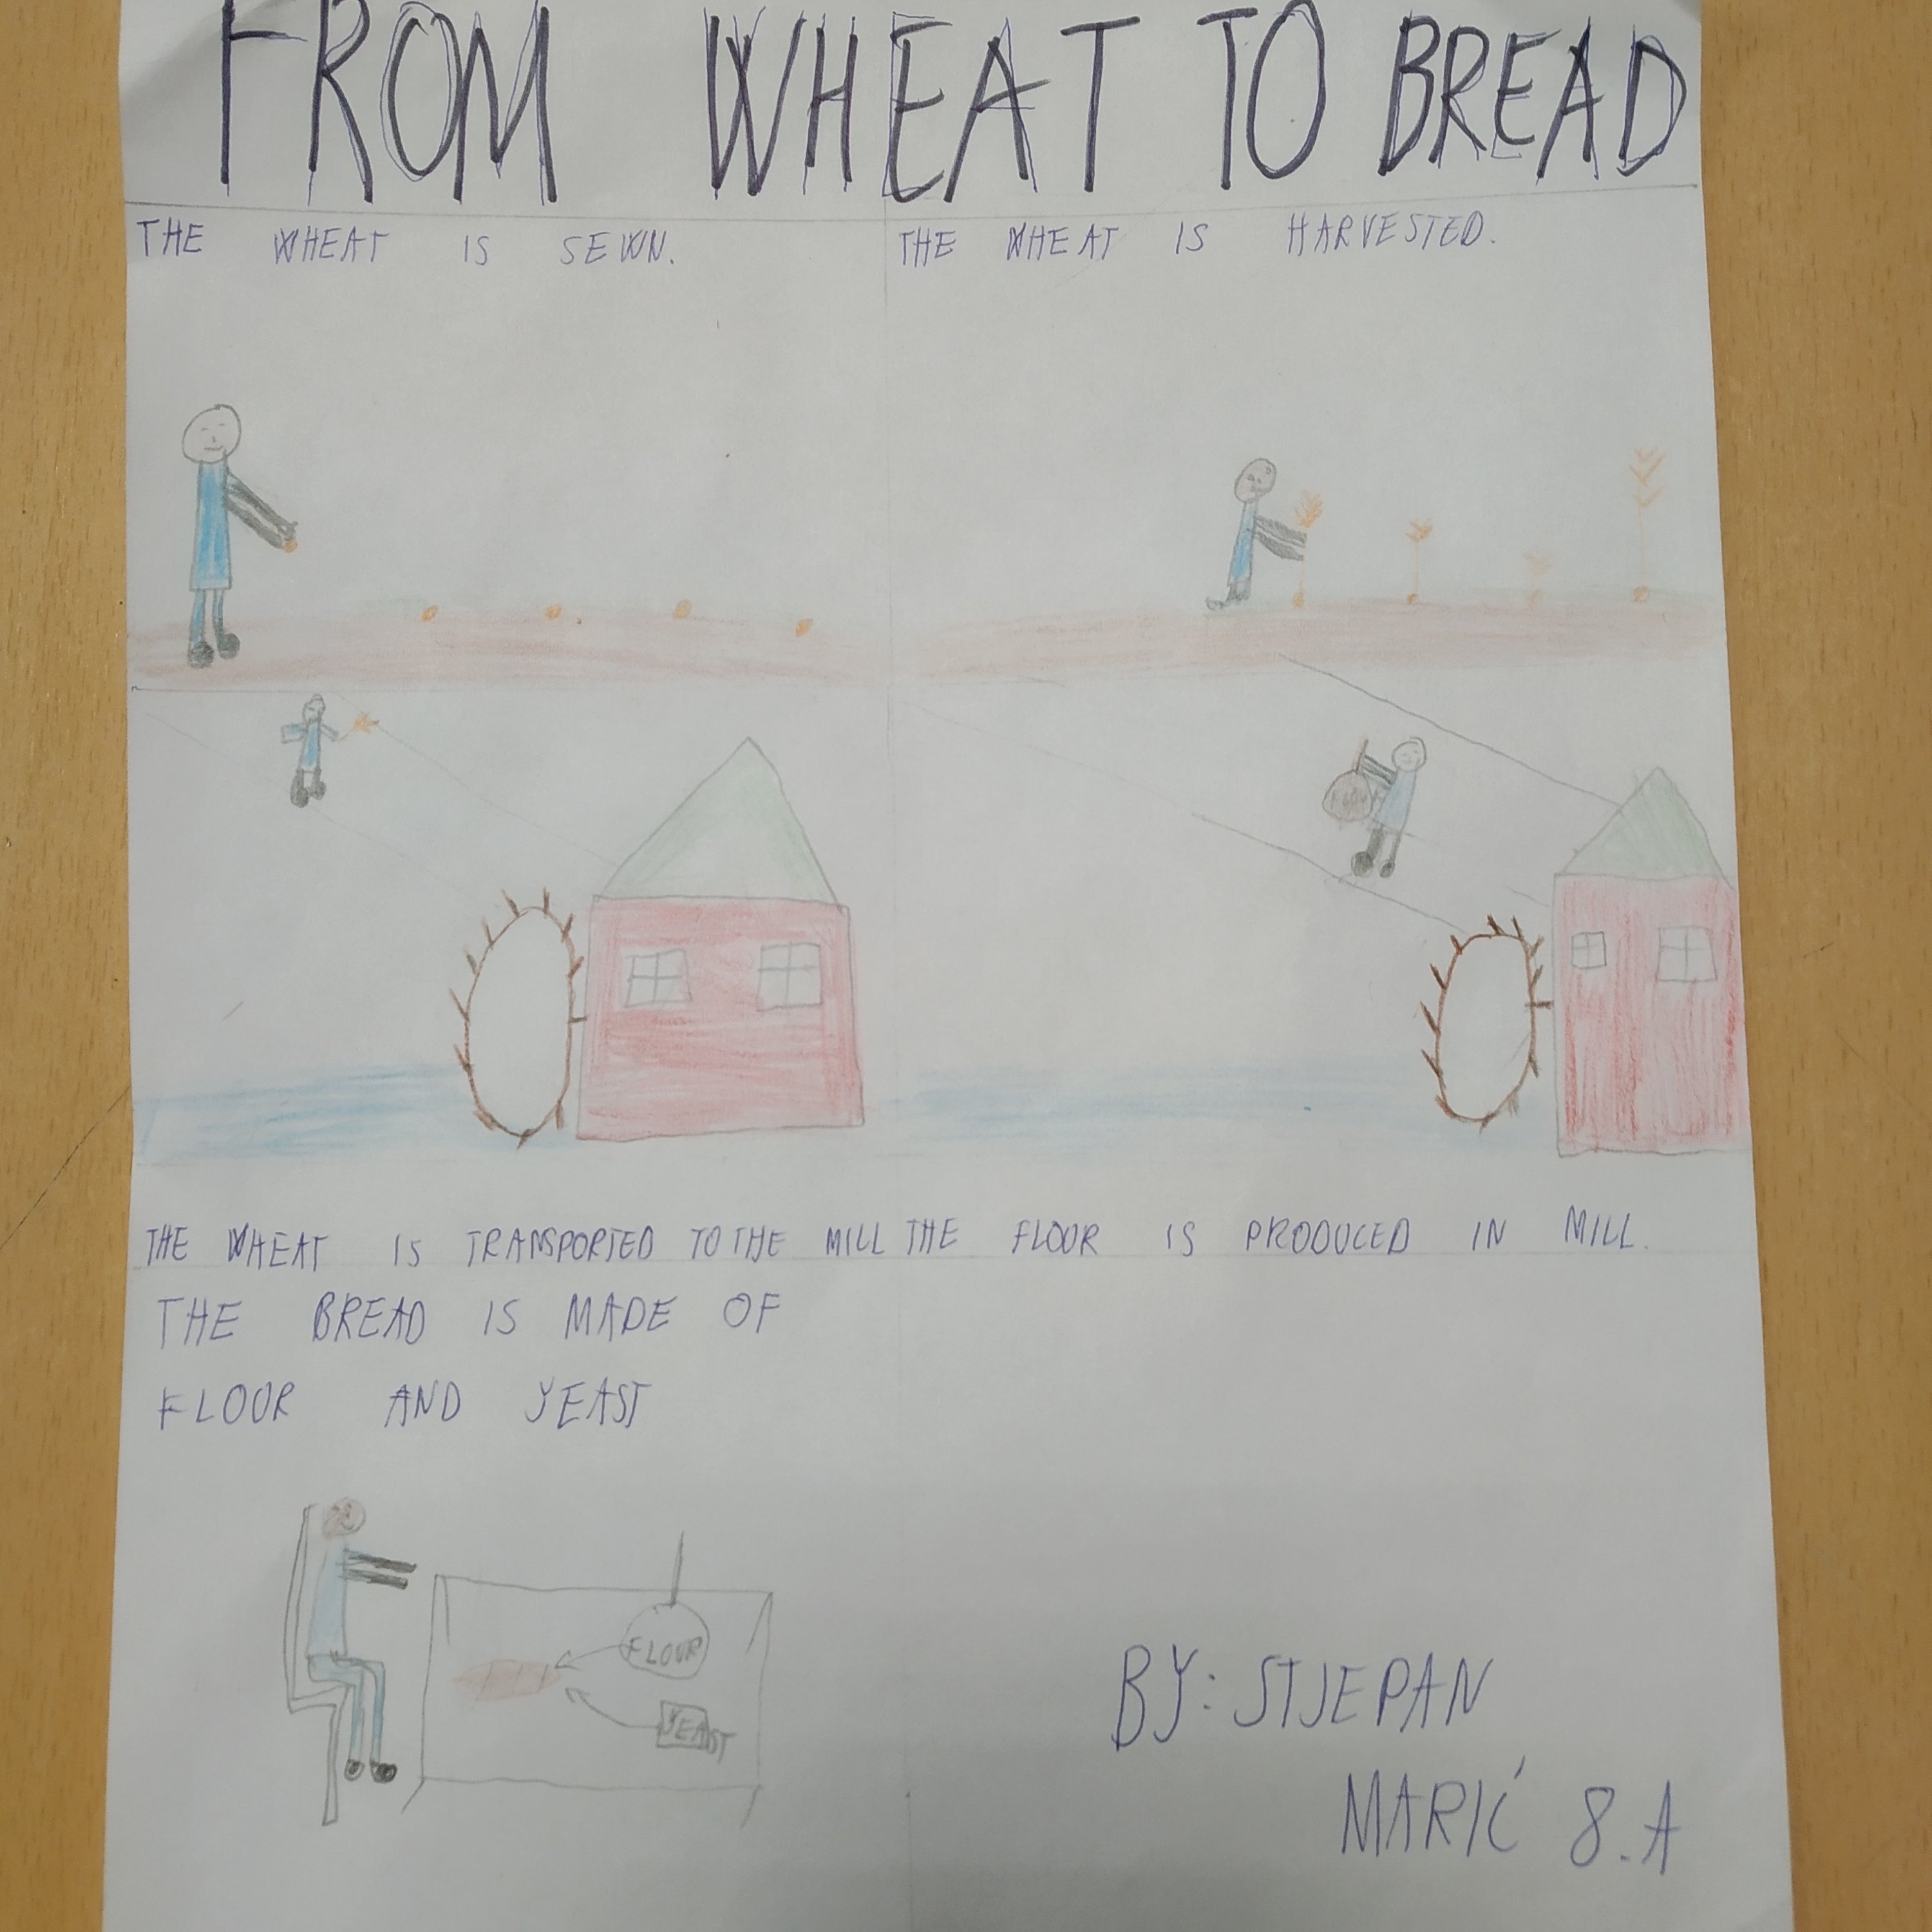 FROM WHEAT TO BREAD
THE WHEAT IS SEWN.
THE WHEAT IS HARVESTED.
FLOUR
THE WHEAT IS TRANSPORTED TO THE MILL
THE FLOOR IS PRODUCED IN MILL.
THE BREAD IS MADE OF
FLOOR AND YEAST
FLOUR
YEAST
BY: STJEPAN
MARIĆ 8.A